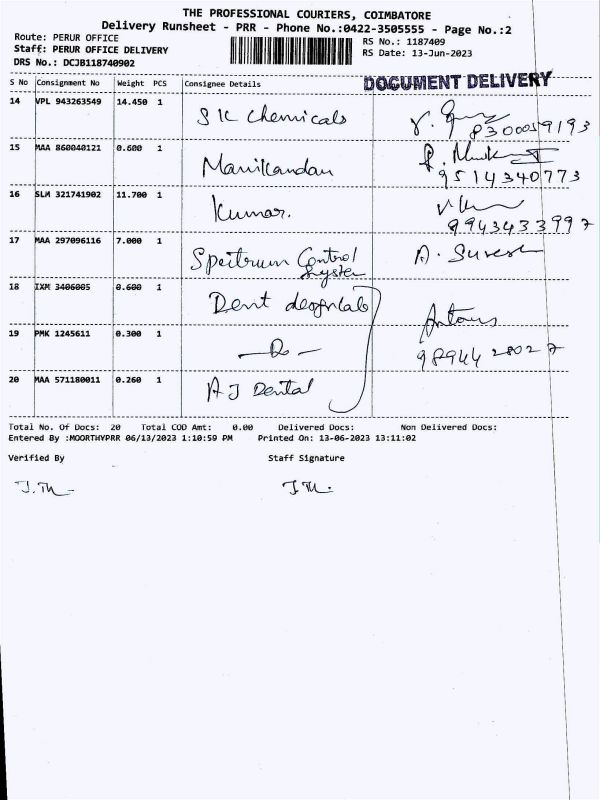 THE PROFESSIONAL COURIERS, COIMBATORE
Delivery Runsheet - PRR - Phone No.:0422-3505555 - Page No.:2
Route: PERUR OFFICE
RS No.: 1187409
Staff: PERUR OFFICE DELIVERY
RS Date: 13-Jun-2023
DRS No.: DCJB118740902
S No Consignment No Weight PCS Consignee Details
DOCUMENT DELIVERY
14 VPL 943263549 14.450 1 S K Chemicals
8300059193
15 MAA 860040121 0.600 1 Manikandan
9514340773
16 SLM 321741902 11.700 1 Kumar.
9943433997
17 MAA 297096116 7.000 1 Spectrum Control System A. Suresh
18 IXM 3406005 0.600 1 Dent designlab
19 PMK 1245611 0.300 1 — Do —
98944 28027
20 MAA 571180011 0.260 1 A J Dental
Total No. Of Docs: 20 Total COD Amt: 0.00 Delivered Docs: Non Delivered Docs:
Entered By :MOORTHYPRR 06/13/2023 1:10:59 PM Printed On: 13-06-2023 13:11:02
Verified By Staff Signature